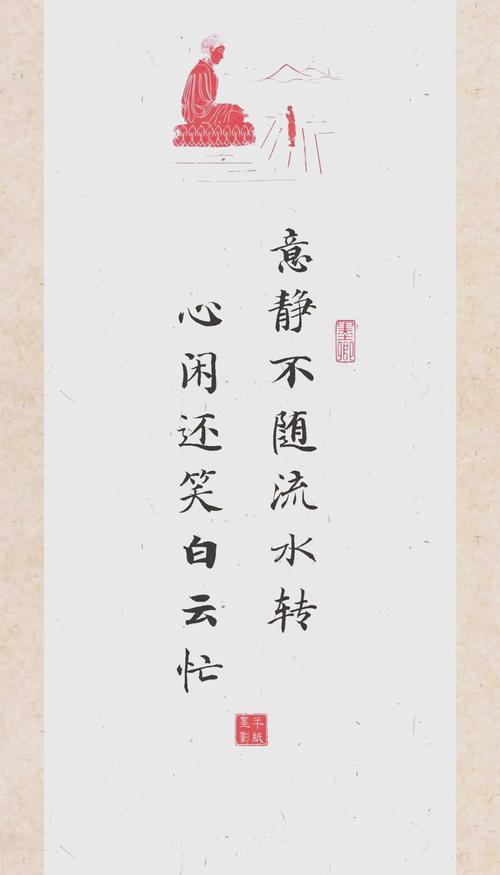 意静不随流水转
心闲还笑白云忙
墨卿
半紙
墨影